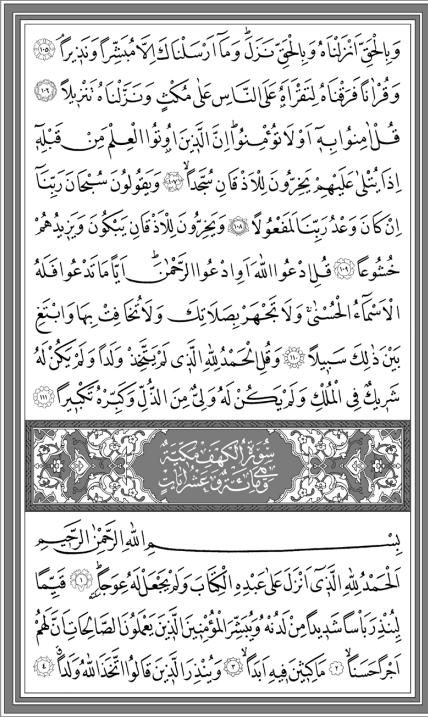 وَبِالْحَقِّ اَنْزَلْنَاهُ وَبِالْحَقِّ نَزَلَۜ وَمَٓا اَرْسَلْنَاكَ اِلَّا مُبَشِّراً وَنَذٖيراًۢ ﴿١٠٥﴾
وَقُرْاٰناً فَرَقْنَاهُ لِتَقْرَاَهُ عَلَى النَّاسِ عَلٰى مُكْثٍ وَنَزَّلْنَاهُ تَنْزٖيلاً ﴿١٠٦﴾
قُلْ اٰمِنُوا بِهٖٓ اَوْ لَا تُؤْمِنُواۜ اِنَّ الَّذٖينَ اُوتُوا الْعِلْمَ مِنْ قَبْلِهٖٓ
اِذَا يُتْلٰى عَلَيْهِمْ يَخِرُّونَ لِلْاَذْقَانِ سُجَّداًۙ ﴿١٠٧﴾ وَيَقُولُونَ سُبْحَانَ رَبِّنَٓا
اِنْ كَانَ وَعْدُ رَبِّنَا لَمَفْعُولاً ﴿١٠٨﴾ وَيَخِرُّونَ لِلْاَذْقَانِ يَبْكُونَ وَيَزٖيدُهُمْ
خُشُوعاً ﴿١٠٩﴾ قُلِ ادْعُوا اللّٰهَ اَوِ ادْعُوا الرَّحْمٰنَۜ اَياًّ مَا تَدْعُوا فَلَهُ
الْاَسْمَٓاءُ الْحُسْنٰىۚ وَلَا تَجْهَرْ بِصَلَاتِكَ وَلَا تُخَافِتْ بِهَا وَابْتَغِ
بَيْنَ ذٰلِكَ سَبٖيلاً ﴿١١٠﴾ وَقُلِ الْحَمْدُ لِلّٰهِ الَّذٖي لَمْ يَتَّخِذْ وَلَداً وَلَمْ يَكُنْ لَهُ
شَرٖيكٌ فِي الْمُلْكِ وَلَمْ يَكُنْ لَهُ وَلِيٌّ مِنَ الذُّلِّ وَكَبِّرْهُ تَكْبٖيراً ﴿١١١﴾
سُورَةُ الْكَهْفِ مَكِّيَّةٌ
وَهِيَ مِائَةٌ وَعَشْرُ اٰيَاتٍ
بِسْمِ اللّٰهِ الرَّحْمٰنِ الرَّحٖيمِ
اَلْحَمْدُ لِلّٰهِ الَّذٖٓي اَنْزَلَ عَلٰى عَبْدِهِ الْكِتَابَ وَلَمْ يَجْعَلْ لَهُ عِوَجاًۜ ﴿١﴾ قَيِّماً
لِيُنْذِرَ بَاْساً شَدٖيداً مِنْ لَدُنْهُ وَيُبَشِّرَ الْمُؤْمِنٖينَ الَّذٖينَ يَعْمَلُونَ الصَّالِحَاتِ اَنَّ لَهُمْ
اَجْراً حَسَناًۙ ﴿٢﴾ مَاكِثٖينَ فٖيهِ اَبَداًۙ ﴿٣﴾ وَيُنْذِرَ الَّذٖينَ قَالُوا اتَّخَذَ اللّٰهُ وَلَداًۗ ﴿٤﴾